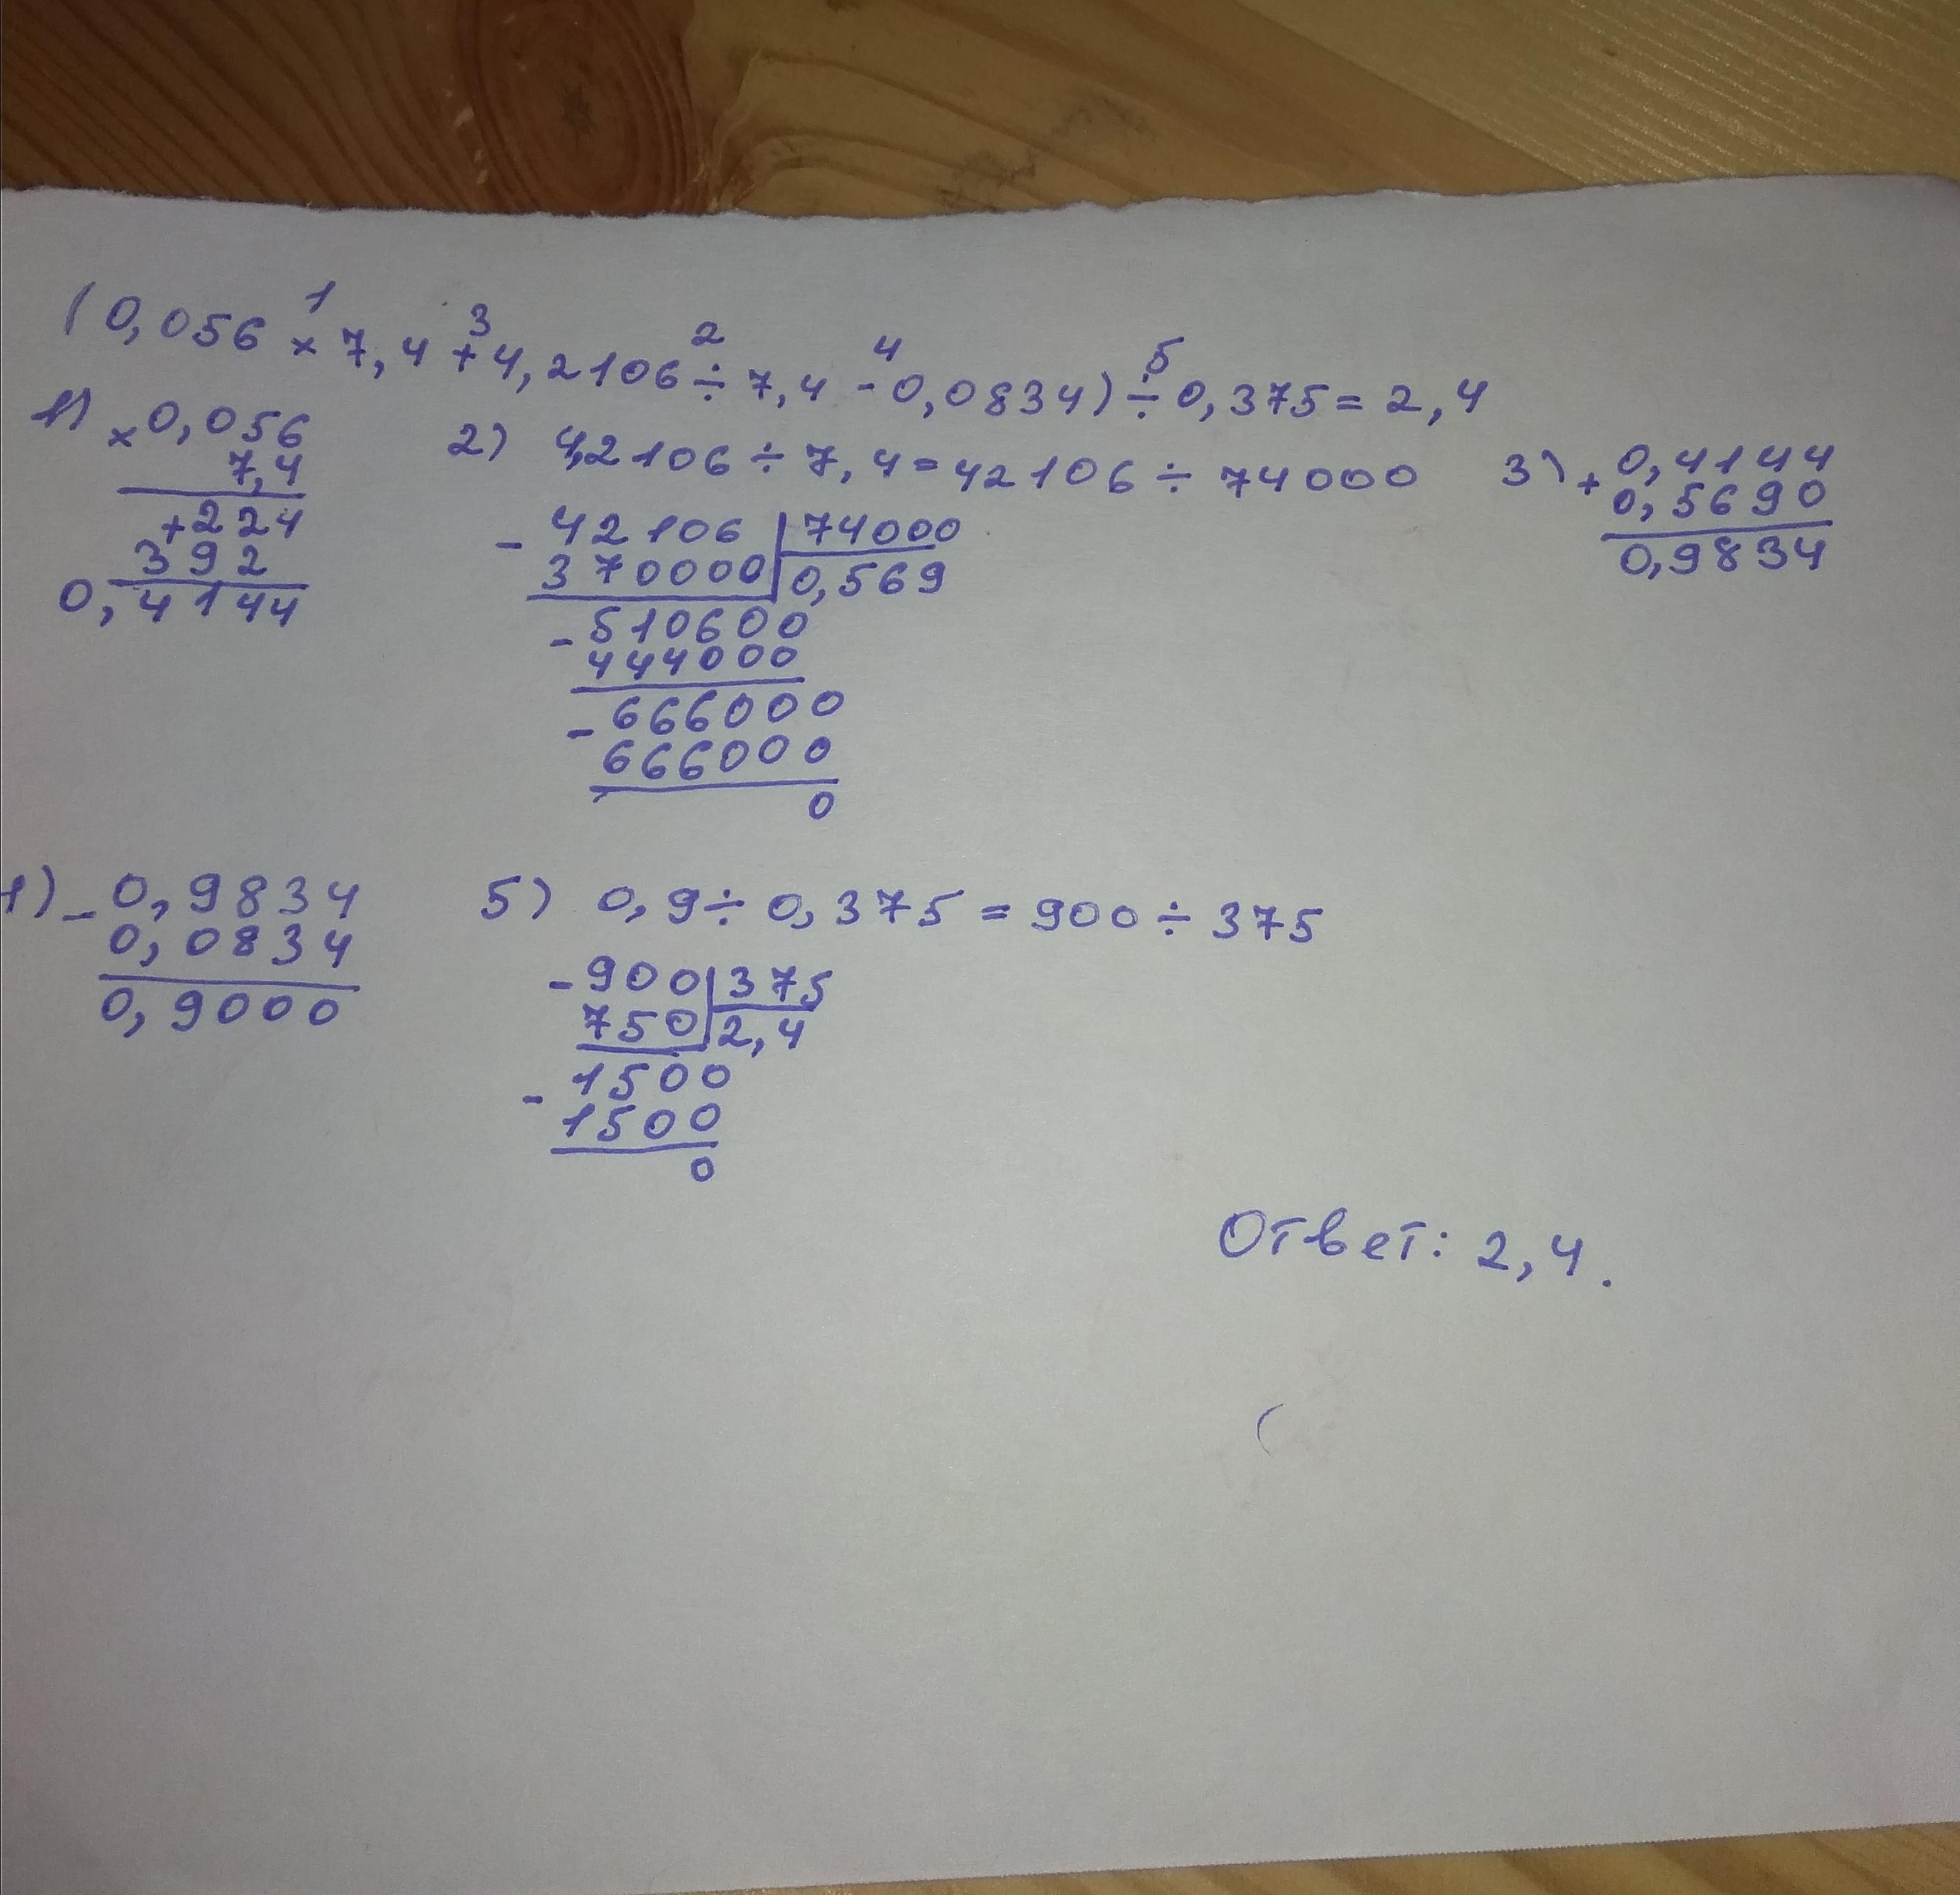 (0,056 × 7,4 + 4,2106 ÷ 7,4 - 0,0834) ÷ 0,375 = 2,4
1 3 2 4 5
1) × 0,056
7,4
+ 224
392
0,4144
2) 4,2106 ÷ 7,4 = 42106 ÷ 74000
- 42106 | 74000
370000 | 0,569
- 510600
444000
- 666000
666000
0
3) + 0,4144
0,5690
0,9834
4) - 0,9834
0,0834
0,9000
5) 0,9 ÷ 0,375 = 900 ÷ 375
- 900 | 375
750 | 2,4
- 1500
1500
0
Ответ: 2,4.
(